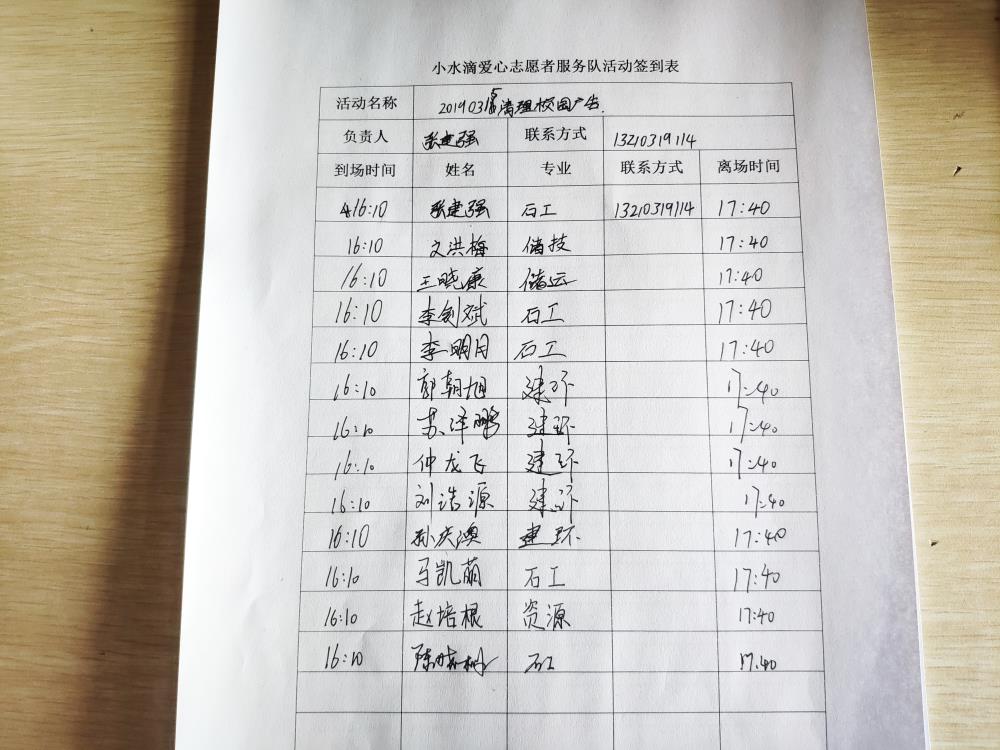 小水滴爱心志愿者服务队活动签到表
活动名称 20190315清理校园广告.
负责人 张建强 联系方式 13210319114
到场时间 姓名 专业 联系方式 离场时间
16:10 张建强 石工 13210319114 17:40
16:10 文洪梅 储技 17:40
16:10 王晓康 储运 17:40
16:10 李剑斌 石工 17:40
16:10 李明月 石工 17:40
16:10 郭朝旭 建环 17:40
16:10 苏泽鹏 建环 17:40
16:10 仲龙飞 建环 17:40
16:10 刘浩源 建环 17:40
16:10 孙庆澳 建环 17:40
16:10 马凯萌 石工 17:40
16:10 赵培根 资源 17:40
16:10 陈晓树 石工 17:40